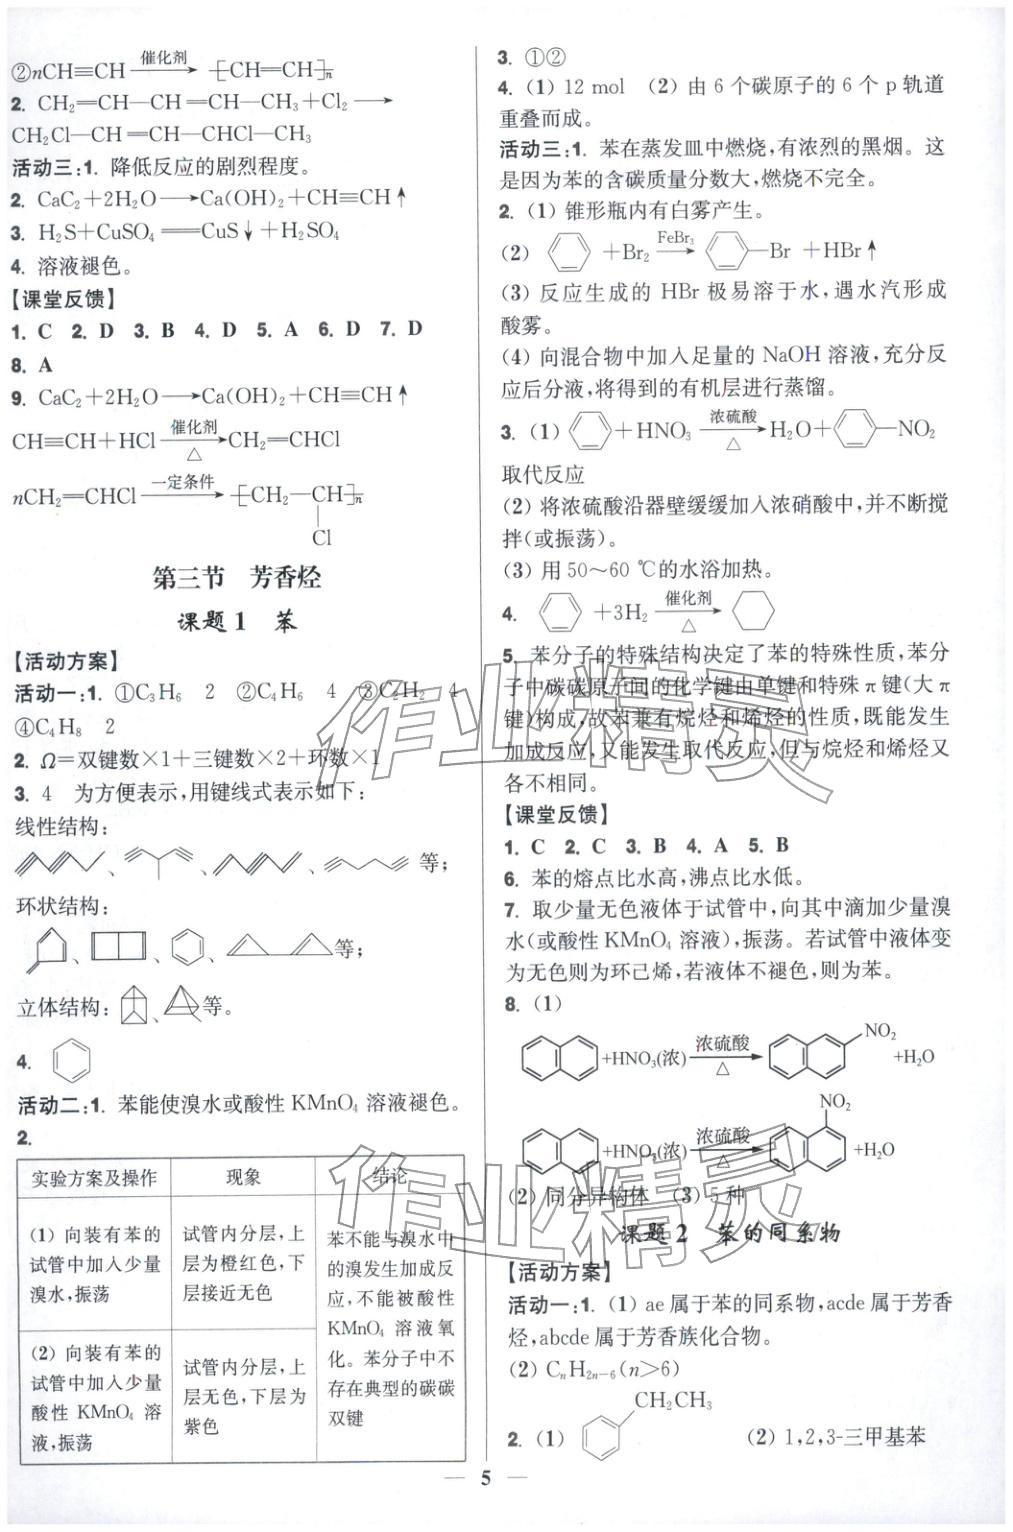 ②nCH≡CH —催化剂→ ⁅CH═CH⁆n
2. CH₂═CH—CH═CH—CH₃+Cl₂⟶
CH₂Cl—CH═CH—CHCl—CH₃
活动三:1. 降低反应的剧烈程度。
2. CaC₂+2H₂O⟶Ca(OH)₂+CH≡CH↑
3. H₂S+CuSO₄══CuS↓+H₂SO₄
4. 溶液褪色。
【课堂反馈】
1. C 2. D 3. B 4. D 5. A 6. D 7. D
8. A
9. CaC₂+2H₂O⟶Ca(OH)₂+CH≡CH↑
CH≡CH+HCl —催化剂/△→ CH₂═CHCl
nCH₂═CHCl —一定条件→ ⁅CH₂—CH⁆n
Cl
第三节 芳香烃
课题1 苯
【活动方案】
活动一:1. ①C₃H₆ 2 ②C₄H₆ 4 ③C₂H₂ 4
④C₄H₈ 2
2. Ω=双键数×1+三键数×2+环数×1
3. 4 为方便表示,用键线式表示如下:
线性结构:
、 、 、 等;
环状结构:
、 、 、 等;
立体结构: 、 等。
4.
活动二:1. 苯能使溴水或酸性 KMnO₄ 溶液褪色。
2.
实验方案及操作 现象 结论
(1) 向装有苯的
试管中加入少量
溴水,振荡
试管内分层,上
层为橙红色,下
层接近无色
(2) 向装有苯的
试管中加入少量
酸性 KMnO₄ 溶
液,振荡
试管内分层,上
层无色,下层为
紫色
苯不能与溴水中
的溴发生加成反
应,不能被酸性
KMnO₄ 溶液氧
化。苯分子中不
存在典型的碳碳
双键
3. ①②
4. (1) 12 mol (2) 由 6 个碳原子的 6 个 p 轨道
重叠而成。
活动三:1. 苯在蒸发皿中燃烧,有浓烈的黑烟。这
是因为苯的含碳质量分数大,燃烧不完全。
2. (1) 锥形瓶内有白雾产生。
(2) +Br₂ —FeBr₃→ —Br +HBr↑
(3) 反应生成的 HBr 极易溶于水,遇水汽形成
酸雾。
(4) 向混合物中加入足量的 NaOH 溶液,充分反
应后分液,将得到的有机层进行蒸馏。
3. (1) +HNO₃ —浓硫酸/△→ H₂O+ —NO₂
取代反应
(2) 将浓硫酸沿器壁缓缓加入浓硝酸中,并不断搅
拌(或振荡)。
(3) 用 50～60 ℃的水浴加热。
4. +3H₂ —催化剂/△→
5. 苯分子的特殊结构决定了苯的特殊性质,苯分
子中碳碳原子间的化学键由单键和特殊 π 键(大 π
键)构成,故苯兼有烷烃和烯烃的性质,既能发生
加成反应,又能发生取代反应,但与烷烃和烯烃又
各不相同。
【课堂反馈】
1. C 2. C 3. B 4. A 5. B
6. 苯的熔点比水高,沸点比水低。
7. 取少量无色液体于试管中,向其中滴加少量溴
水(或酸性 KMnO₄ 溶液),振荡。若试管中液体变
为无色则为环己烯,若液体不褪色,则为苯。
8. (1)
+HNO₃(浓) —浓硫酸/△→ NO₂ +H₂O
+HNO₃(浓) —浓硫酸/△→ NO₂ +H₂O
(2) 同分异构体 (3) 5 种
课题2 苯的同系物
【活动方案】
活动一:1. (1) ae 属于苯的同系物,acde 属于芳香
烃,abcde 属于芳香族化合物。
(2) CₙH₂ₙ₋₆(n>6)
2. (1) CH₂CH₃ (2) 1,2,3-三甲基苯
— 5 —
作业精灵
作业精灵